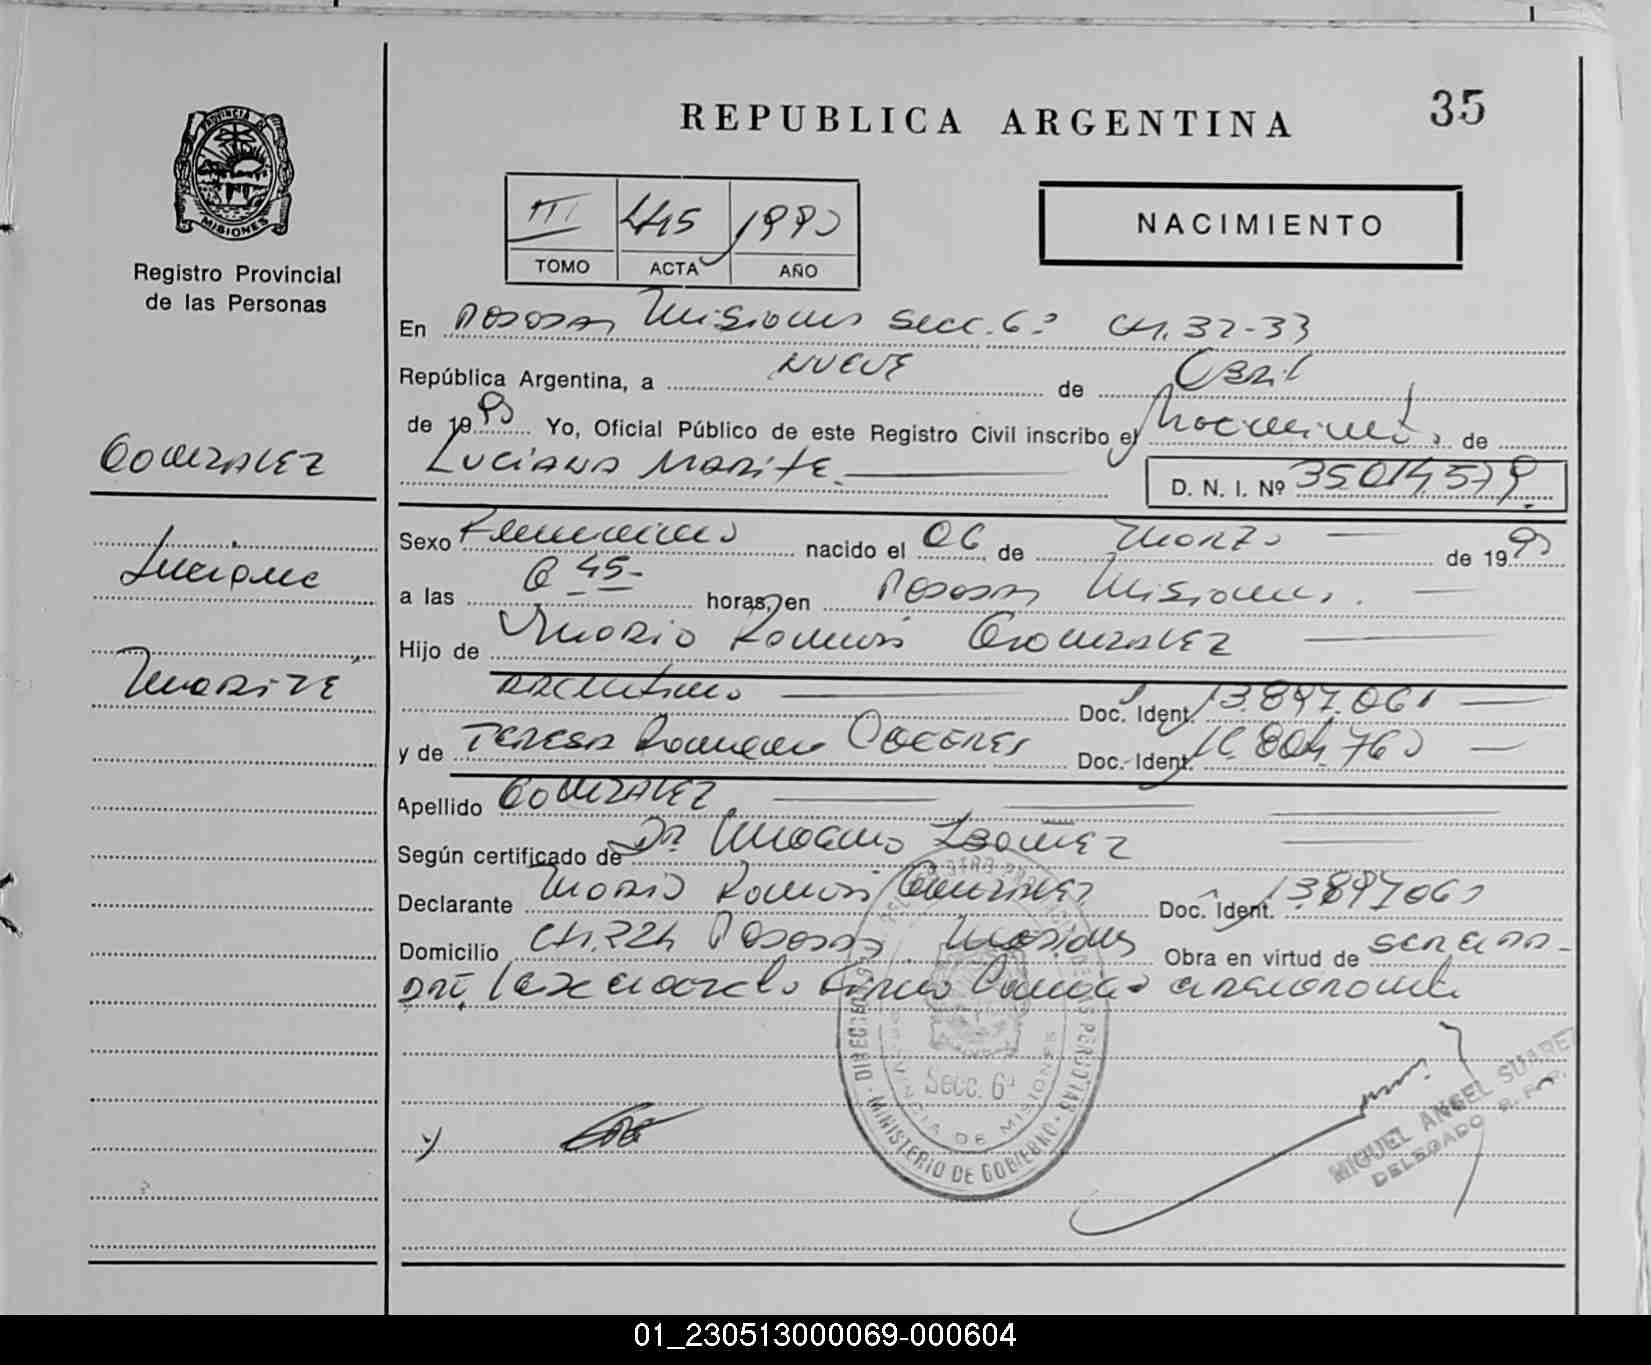 REPUBLICA ARGENTINA
35
PROVINCIA DE
MISIONES
Registro Provincial
de las Personas
III 445 1990
TOMO ACTA AÑO
NACIMIENTO
En Posadas Misiones Secc. 6ª CH. 32-33
República Argentina, a NUEVE de Abril
de 1990 Yo, Oficial Público de este Registro Civil inscribo el Nacimiento de
Luciana Marite.
D. N. I. Nº 35.014.579.
GONZALEZ
Luciana
Marité
Sexo Femenino nacido el 06 de Marzo de 1990
a las 6 45- horas, en Posadas Misiones.
Hijo de Mario Ramon Gonzalez
Argentino Doc. Ident. 13.897.061
y de Teresa Caceres Doc. Ident. .804.760
Apellido Gonzalez
Según certificado de Dr.
Declarante Mario Ramon Gonzalez Doc. Ident. 13897061
Domicilio CH. Posadas Misiones Obra en virtud de ser el pa-
dre,
Secc. 6ª
MINISTERIO DE GOBIERNO
PROVINCIA DE MISIONES
MIGUEL ANGEL SUAREZ
DELEGADO R. P. P.
01_230513000069-000604